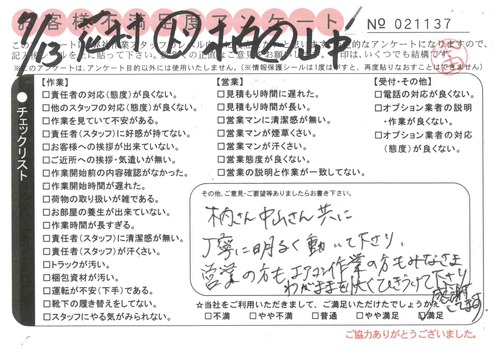 お客様不満足度アンケート
№ 021137
7/13
チェックリスト
【作業】
□責任者の対応(態度)が良くない。
□他のスタッフの対応(態度)が良くない。
□作業を見ていて不安がある。
□責任者(スタッフ)に好感が持てない。
□お客様への挨拶が出来ていない。
□ご近所への挨拶・気遣いが無い。
□作業開始前の内容確認がなかった。
□作業開始時間が遅れた。
□荷物の取り扱いが雑である。
□お部屋の養生が出来ていない。
□作業時間が長すぎる。
□責任者(スタッフ)に清潔感が無い。
□責任者(スタッフ)が汗くさい。
□トラックが汚い。
□梱包資材が汚い。
□運転が不安(下手)である。
□靴下の履き替えをしてない。
□スタッフにやる気がみられない。
【営業】
□見積もり時間に遅れた。
□見積もり時間が長い。
□営業マンに清潔感が無い。
□営業マンが煙草くさい。
□営業マンが汗くさい。
□営業態度が良くない。
□営業の説明と作業が一致してない。
【受付・その他】
□電話の対応が良くない。
□オプション業者の説明
・作業が良くない。
□オプション業者の対応
(態度)が良くない。
その他、ご意見・ご要望等ありましたらお書き下さい。
柄さん中山さん共に
丁寧に明るく動いて下さり、
営業の方もエアコン作業の方もみなさま
わがままを快くひきうけて下さり
感謝してます。
☆当社をご利用いただきまして、ご満足いただけたでしょうか?
□不満 □やや不満 □普通 □やや満足 ☑満足
ご協力ありがとうございました。